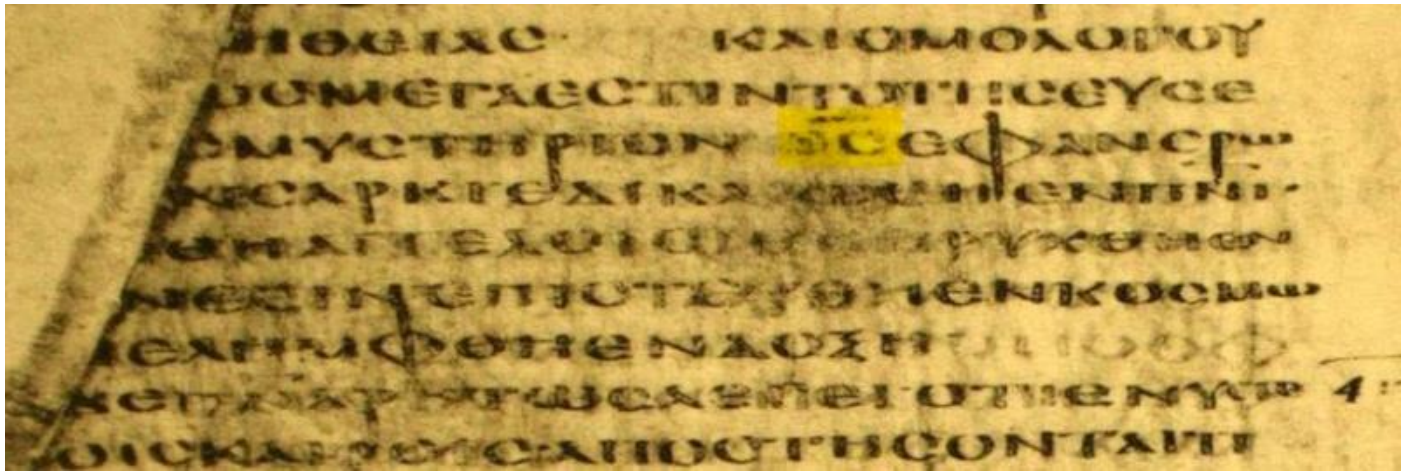 ΗΘΕΙΑϹ· ΚΑΙΟΜΟΛΟΓΟΥ
ΟϹΜΕΓΑΕϹΤΙΝΤΟΤΗϹΕΥϹΕ
ϹΜΥϹΤΗΡΙΟΝ Θ̅Ϲ̅ΕΦΑΝΕΡΩ
ΝϹΑΡΚΙΕΔΙΚΑΙΩΘΗΕΝΠΝΙ·
ΘΗΑΓΓΕΛΟΙϹΕΚΗΡΥΧΘΗΕΝ
ΝΕϹΙΝΕΠΙϹΤΕΥΘΗΕΝΚΟϹΜΩ
ΝΕΛΗΜΦΘΗΕΝΔΟΞΗ
ΛΕΓΕΙΟΤΙΕΝΥ 4
ΟΙϹΚΑΙΡΟΙϹΑΠΟϹΤΗϹΟΝΤΑΙΤΙ